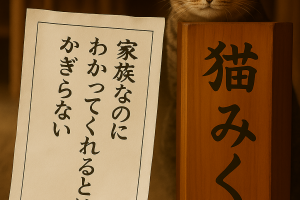 家族なのに
わかってくれると
かぎらない
猫みく